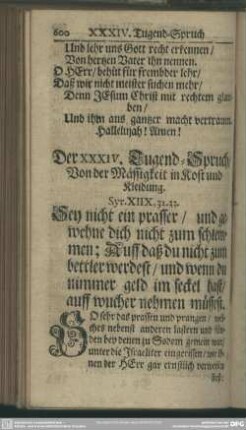 600 XXXIV. Tugend-Spruch
Und lehr uns Gott recht erkennen/
Von hertzen Vater ihn nennen.
O HErr/ behüt für frembder lehr/
Daß wir nicht meister suchen mehr/
Denn JEsum Christ mit rechtem glau-
ben/
Und ihm aus gantzer macht vertrauen.
Hallelujah! Amen!
Der XXXIV. Tugend-Spruch
Von der Mässigkeit in Kost und
Kleidung.
Syr. XIIX. 32. 33.
Sey nicht ein prasser/ und ge-
wehne dich nicht zum schlem-
men; Auff daß du nicht zum
bettler werdest/ und wenn du
nimmer geld im seckel hast/
auff wucher nehmen müssest.
SO sehr das prassen und prangen/ wel-
ches nebenst anderen lastern und sün-
den bey denen zu Sodom gemein war/
unter die Israeliter eingerissen/ wo ih-
nen der HErr gar ernstlich verweisen